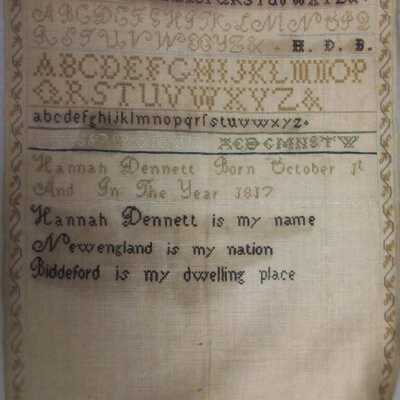 ABCDEFGHIJKLMNOPQ
RSTUVWXYZ& H. D. D.
ABCDEFGHIJKLMNOP
QRSTUVWXYZ&
abcdefghijklmnopqrſstuvwxyz.
Hannah Dennett Born October 1st
And In The Year 1817
Hannah Dennett is my name
Newengland is my nation
Biddeford is my dwelling place